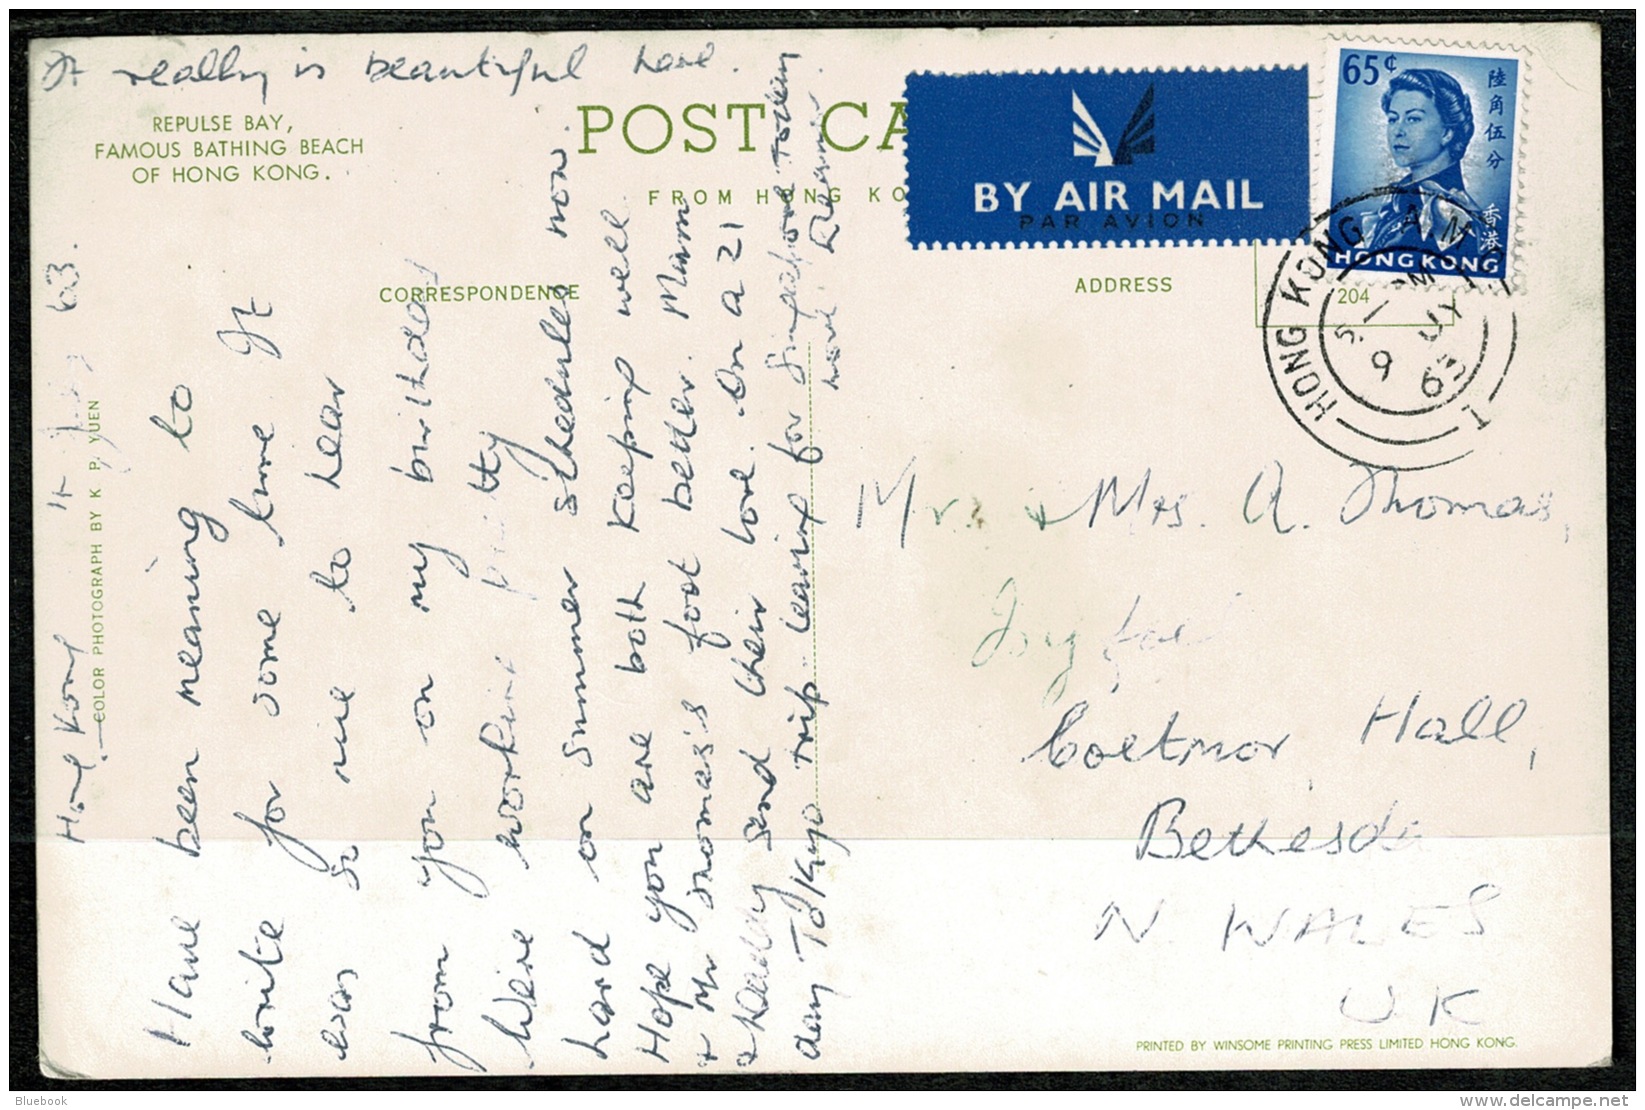 It really is beautiful here.
REPULSE BAY,
FAMOUS BATHING BEACH
OF HONG KONG.
POST CA
FROM HONG KO
BY AIR MAIL
PAR AVION
65¢
陸角伍分
香港
HONG KONG
HONG KONG
5 - PM
9 JY
63
1
CORRESPONDENCE
ADDRESS
204
Hong Kong 63.
COLOR PHOTOGRAPH BY K. P. YUEN
Have been meaning to
write for some time. It
was so nice to hear
from you on my birthday
We're working pretty
hard on summer schedules now.
Hope you are both keeping well
& Mr Thomas's foot better. Mum
& Daddy send their love. On a 21
day Tokyo trip. leaving for Singapore
love
Mr. & Mrs. A. Thomas,
Coetmor Hall,
Bethesda
N WALES
UK
PRINTED BY WINSOME PRINTING PRESS LIMITED HONG KONG.
Bluebook
delcampe.net